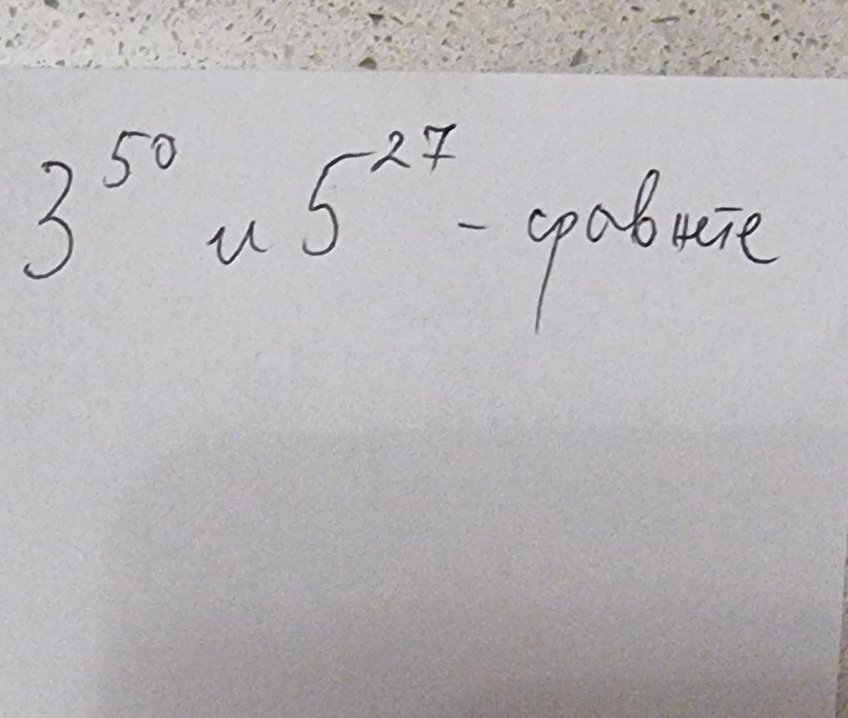 3^50 и 5^27 - сравните